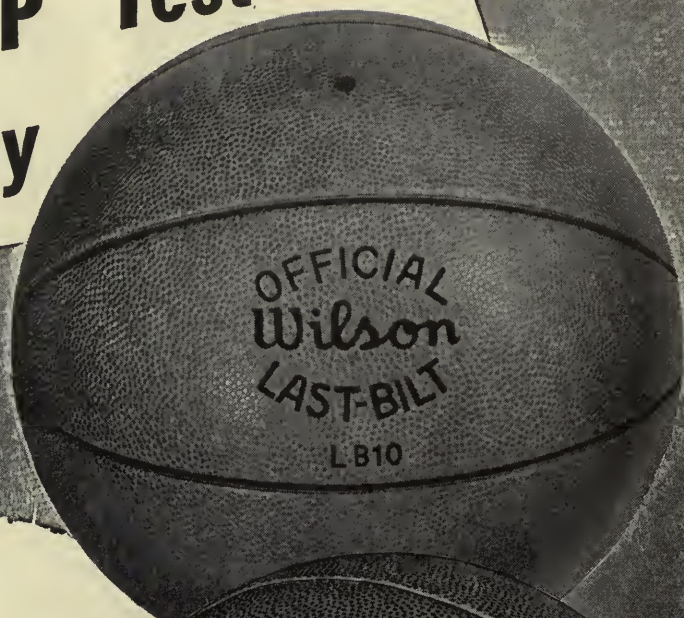 P Test
y
OFFICIAL
Wilson
LAST-BILT
LB10